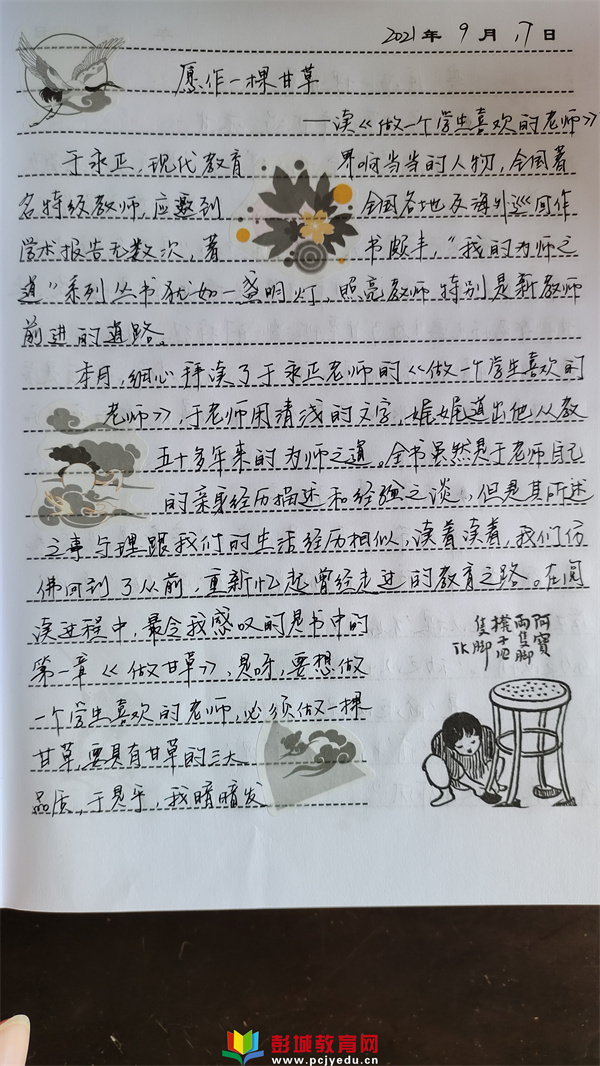 2021年9月17日
愿作一棵甘草
——读《做一个学生喜欢的老师》
于永正,现代教育界响当当的人物,全国著
名特级教师,应邀到全国各地及海外巡回作
学术报告无数次,著书颇丰,“我的为师之
道”系列丛书犹如一盏明灯,照亮教师特别是新教师
前进的道路。
本月,细心拜读了于永正老师的《做一个学生喜欢的
老师》,于老师用清浅的文字,娓娓道出他从教
五十多年来的为师之道。全书虽然是于老师自己
的亲身经历描述和经验之谈,但是其所述
之事与理跟我们的生活经历相似,读着读着,我们仿
佛回到了从前,重新忆起曾经走过的教育之路。在阅
读过程中,最令我感叹的是书中的
第一章《做甘草》,是呀,要想做
一个学生喜欢的老师,必须做一棵
甘草,要具有甘草的三大
品质,于是乎,我暗暗发
阿寶
兩隻脚
櫈子四
隻脚
TK
彭城教育网
www.pcjyedu.cn